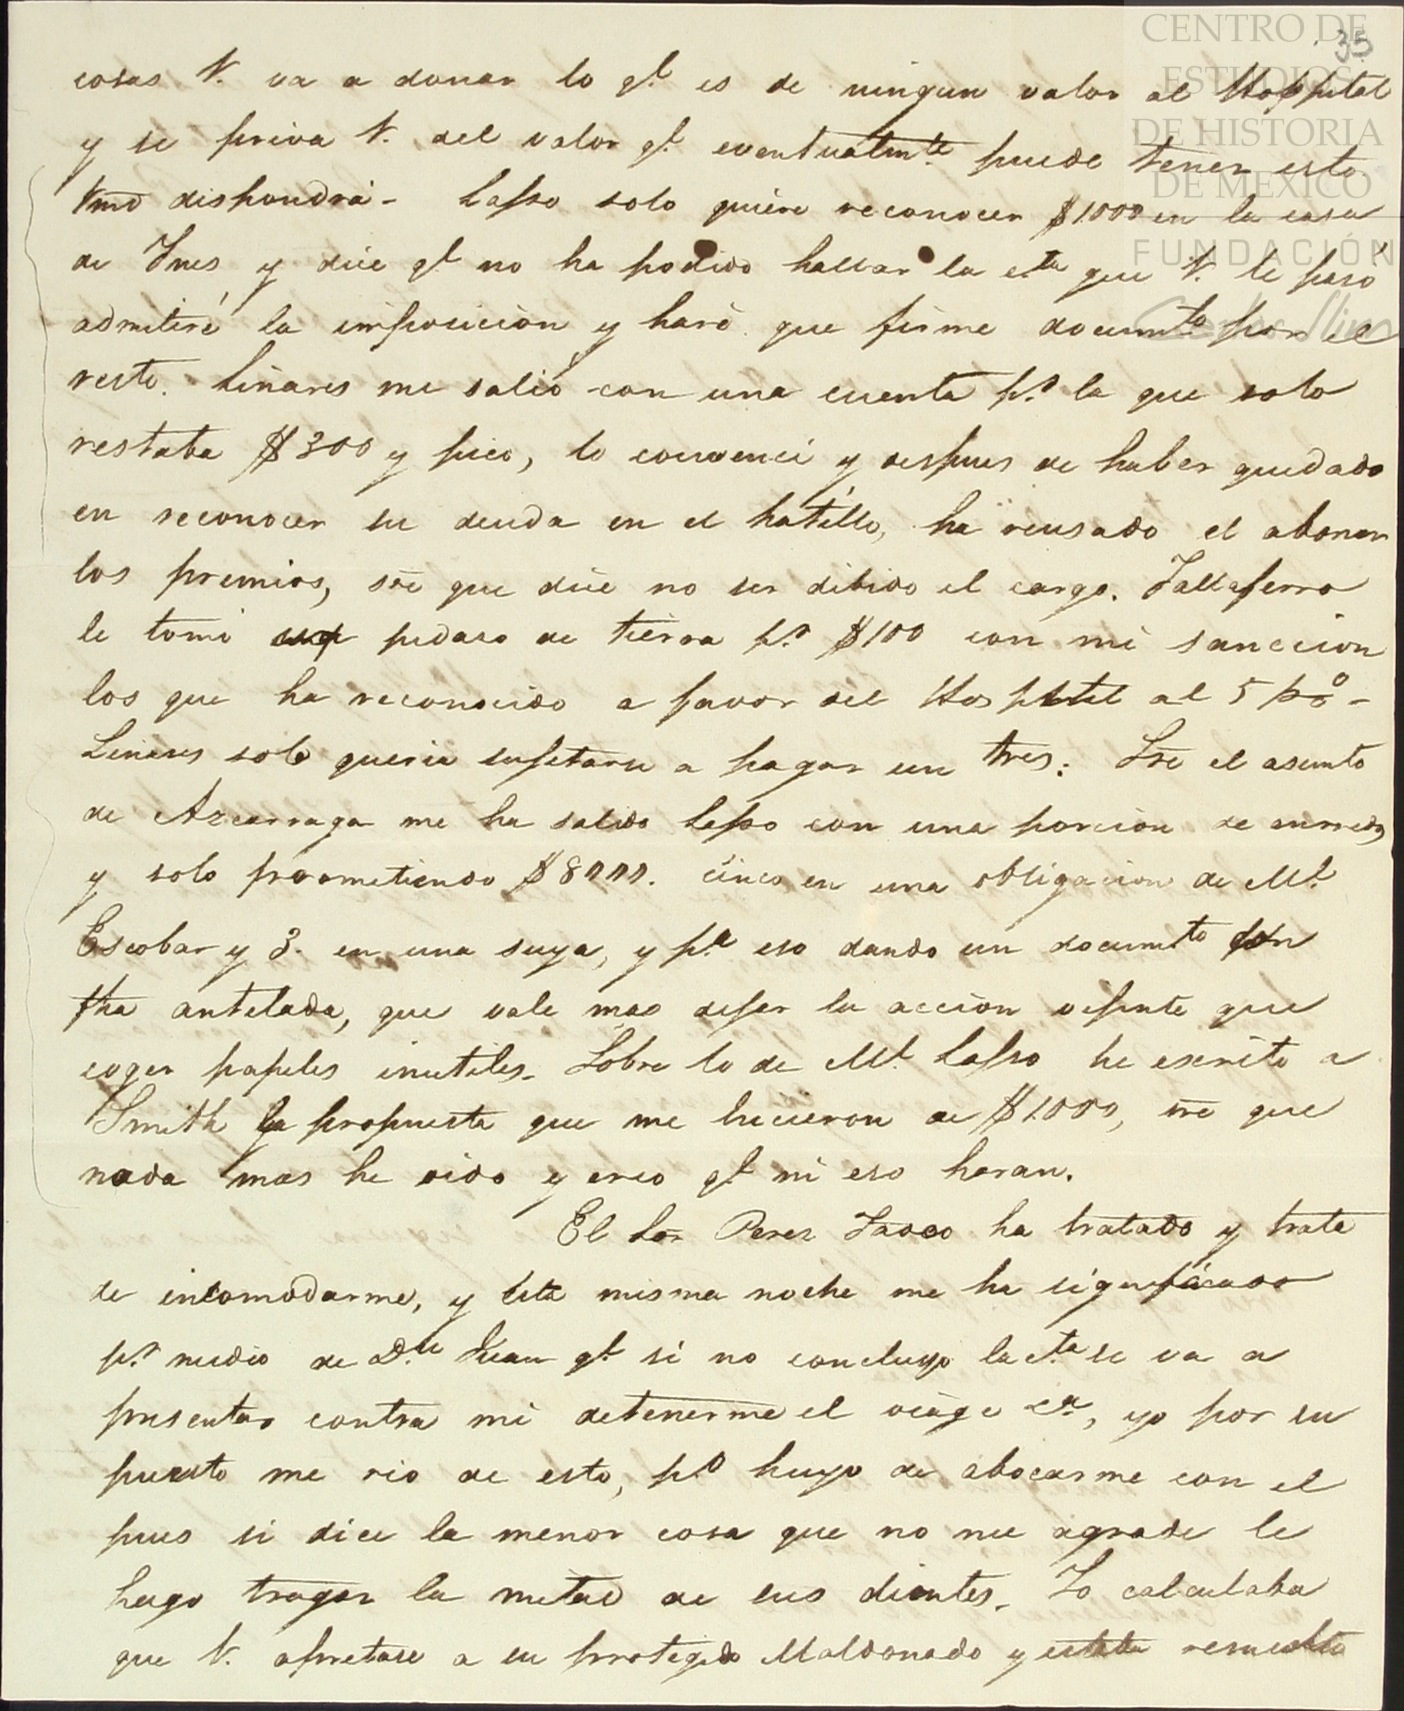 35
CENTRO DE
ESTUDIOS
DE HISTORIA
DE MEXICO
FUNDACIÓN
Carlos Slim
cosas V. va a donar lo qe. es de ningun valor al Hospital
y se priva V. del valor qe. eventualmte. puede tener esto.
Vmd dispondrá - Lasso solo quiere reconocer $1000 en la casa
de Ines, y dice qe. no ha podido hallar la cta que V. le pasó
admitiré la imposicion y haré que firme documto por el
resto. Liñares me salió con una cuenta pr. la que solo
restaba $300 y pico, lo convencí y despues de haber quedado
en reconocer su deuda en el hatillo, ha reusado el abonar
los premios, sre que dice no ser debido el cargo. Tallaferro
le tomé un pedaso de tierra pr. $100 con mi sancion
los que ha reconocido a favor del Hospital al 5 p% -
Linares solo queria sujetarse a pagar un tres: Sre el asunto
de Azcarraga me ha salido Lasso con una porcion de enredos
y solo prometiendo $8000. cinco en una obligacion de Ml.
Escobar y 3. en una suya, y pa. eso dando un documto con
fha antelada, que vale mas dejar la accion vijente que
coger papeles inutiles. Sobre lo de Ml. Lasso he escrito a
Smith la propuesta que me hicieron de $1000, sre que
nada mas he oido y creo qe. ni eso haran.
El Sor Perez Tadeo ha tratado y trata
de incomodarme, y esta misma noche me ha significado
pr. medio de Dn. Juan qe. si no concluyo la cta. se va a
presentar contra mi detenerme el viage &a, yo por su
puesto me rio de esto, po. huyo de abocarme con el
pues si dice la menor cosa que no me agrade le
hago tragar la mitad de sus dientes. Yo calculaba
que V. apretase a su protegido Maldonado y estaba resuelto